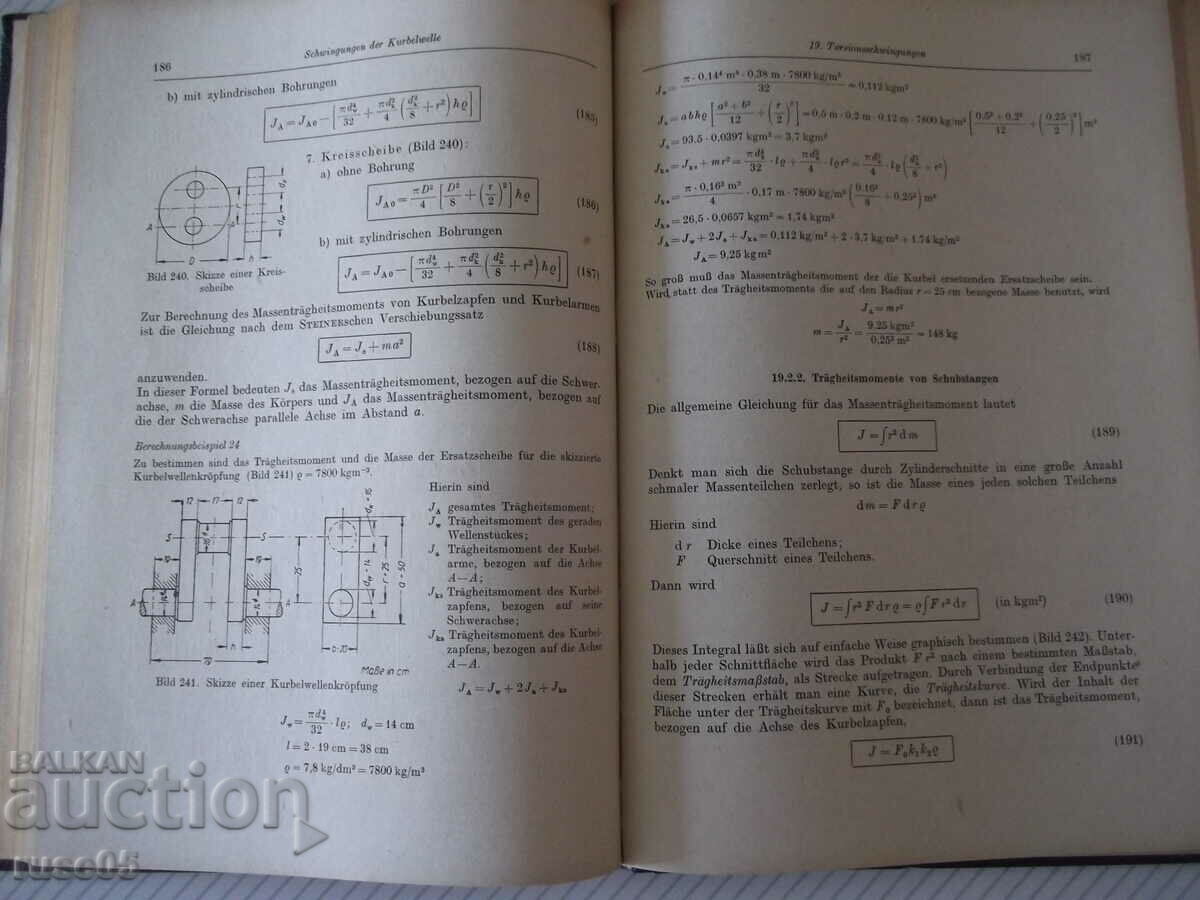 Schwingungen der Kurbelwelle
186
b) mit zylindrischen Bohrungen
J_A = J_A0 − [πd_w⁴/32 + πd_k²/4 (d_k²/8 + r²) hϱ] (185)
7. Kreisscheibe (Bild 240):
a) ohne Bohrung
J_A0 = πD²/4 [D²/8 + (r/2)²] hϱ (186)
b) mit zylindrischen Bohrungen
J_A = J_A0 − [πd_w⁴/32 + πd_k²/4 (d_k²/8 + r²) hϱ] (187)
A A D h
Bild 240. Skizze einer Kreis-
scheibe
Zur Berechnung des Massenträgheitsmoments von Kurbelzapfen und Kurbelarmen
ist die Gleichung nach dem STEINERschen Verschiebungssatz
J_A = J_s + ma² (188)
anzuwenden.
In dieser Formel bedeuten J_s das Massenträgheitsmoment, bezogen auf die Schwer-
achse, m die Masse des Körpers und J_A das Massenträgheitsmoment, bezogen auf
die der Schwerachse parallele Achse im Abstand a.
Berechnungsbeispiel 24
Zu bestimmen sind das Trägheitsmoment und die Masse der Ersatzscheibe für die skizzierte
Kurbelwellenkröpfung (Bild 241) ϱ = 7800 kgm⁻³.
12 17 12
S S
A A
25 r=25 a=50
h
Maße in cm
Bild 241. Skizze einer Kurbelwellenkröpfung
Hierin sind
J_A gesamtes Trägheitsmoment;
J_w Trägheitsmoment des geraden
Wellenstückes;
J_a Trägheitsmoment der Kurbel-
arme, bezogen auf die Achse
A—A;
J_ks Trägheitsmoment des Kurbel-
zapfens, bezogen auf seine
Schwerachse;
J_ka Trägheitsmoment des Kurbel-
zapfens, bezogen auf die Achse
A—A.
J_A = J_w + 2J_a + J_ka
J_w = πd_w⁴/32 · lϱ; d_w = 14 cm
l = 2 · 19 cm = 38 cm
ϱ = 7,8 kg/dm³ = 7800 kg/m³
19. Torsionsschwingungen
187
= π · 0,14⁴ m⁴ · 0,38 m · 7800 kg/m³ / 32 = 0,112 kgm²
J_a = abhϱ [(a² + b²)/12 + (r/2)²] = 0,5 m · 0,2 m · 0,12 m · 7800 kg/m³ [(0,5² + 0,2²)/12 + (0,25/2)²] m²
J_a = 93,5 · 0,0397 kgm² = 3,7 kgm²
J_ka = J_ks + mr² = πd_k⁴/32 · lϱ + πd_k²/4 · lϱr² = πd_k²/4 · lϱ (d_k²/8 + r²)
J_ka = π · 0,16² m²/4 · 0,17 m · 7800 kg/m³ (0,16²/8 + 0,25²) m²
J_ka = 26,5 · 0,0657 kgm² = 1,74 kgm²
J_A = J_w + 2J_a + J_ka = 0,112 kg/m² + 2 · 3,7 kg/m² + 1,74 kg/m²
J_A = 9,25 kgm²
So groß muß das Massenträgheitsmoment der die Kurbel ersetzenden Ersatzscheibe sein.
Wird statt des Trägheitsmoments die auf den Radius r = 25 cm bezogene Masse benutzt, wird
J_A = mr²
m = J_A/r² = 9,25 kgm²/0,25² m² = 148 kg
19.2.2. Trägheitsmomente von Schubstangen
Die allgemeine Gleichung für das Massenträgheitsmoment lautet
J = ∫r² dm (189)
Denkt man sich die Schubstange durch Zylinderschnitte in eine große Anzahl
schmaler Massenteilchen zerlegt, so ist die Masse eines jeden solchen Teilchens
dm = F dr ϱ
Hierin sind
dr Dicke eines Teilchens;
F Querschnitt eines Teilchens.
Dann wird
J = ∫r² F dr ϱ = ϱ∫F r² dr (in kgm²) (190)
Dieses Integral läßt sich auf einfache Weise graphisch bestimmen (Bild 242). Unter-
halb jeder Schnittfläche wird das Produkt F r² nach einem bestimmten Maßstab,
dem Trägheitsmaßstab, als Strecke aufgetragen. Durch Verbindung der Endpunkte
dieser Strecken erhält man eine Kurve, die Trägheitskurve. Wird der Inhalt der
Fläche unter der Trägheitskurve mit F₀ bezeichnet, dann ist das Trägheitsmoment,
bezogen auf die Achse des Kurbelzapfen,
J = F₀k₁k₂ϱ (191)
BALKAN
auction
ruse05